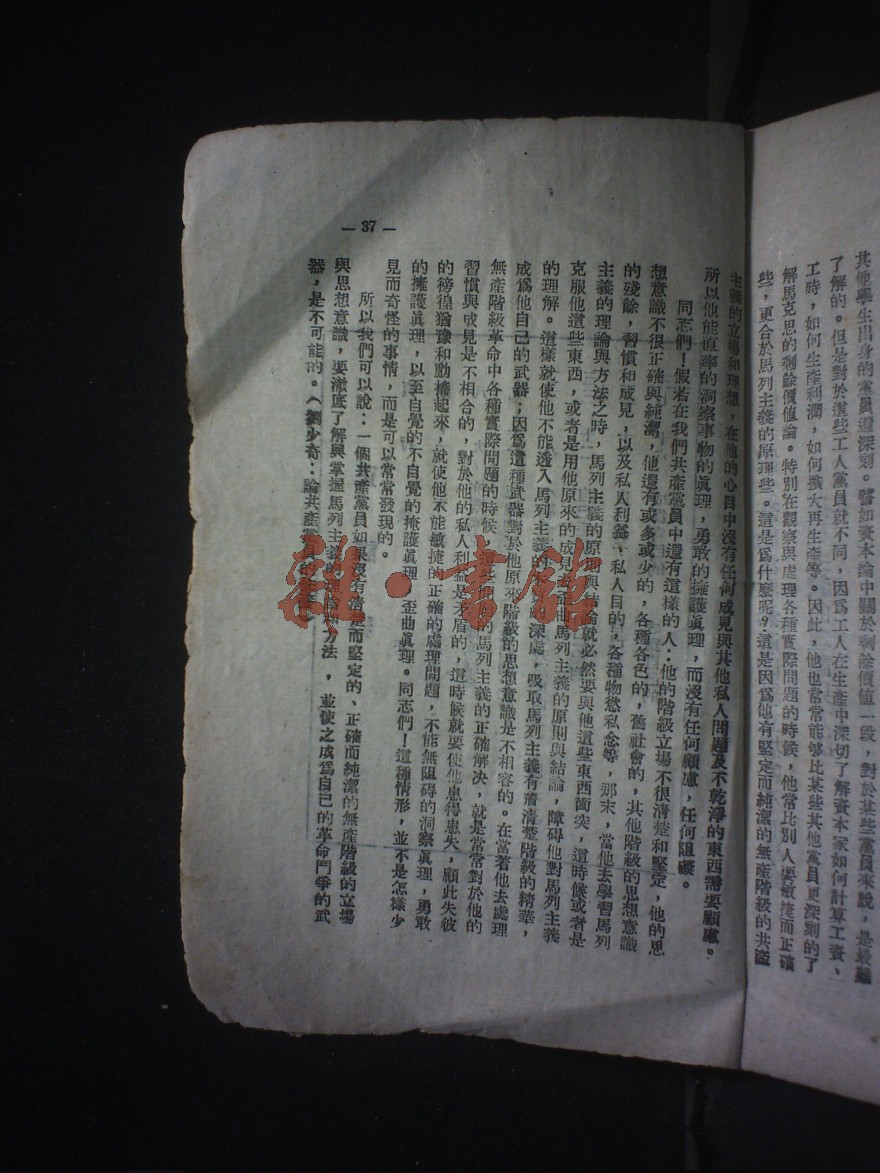 其他學生出身的黨員還深刻。譬如資本論中關於剩餘價值一段，對於某些黨員來說，是最難
了解的。但是對於這些工人黨員就不同，因爲工人在生產中深切了解資本家如何計算工資、
工時，如何生產利潤，如何擴大再生產等。因此，他也常常能够比某些其他黨員更深刻的了
解馬克思的剩餘價值論。特別在觀察與處理各種實際問題的時候，他常比別人要敏捷而正確
些，更合於馬列主義的原理些。這是爲什麽呢？這是因爲他有堅定而純潔的無產階級的共產
主義的立場和理想，在他的心目中沒有任何成見與其他私人問題及不乾淨的東西需要顧慮。
所以他能直率的洞察事物的眞理，勇敢的擁護眞理，而沒有任何顧慮，任何阻礙。
同志們！假若在我們共產黨員中還有這樣的人：他的階級立場不很清楚和堅定，他的思
想意識不很正確與純潔，他還有或多或少的，各種各色的，舊社會的，其他階級的思想意識
的殘餘，習慣和成見，以及私人利益、私人目的，各種物慾私念等，那末，當他去學習馬列
主義的理論與方法之時，馬列主義的原則與結論就必然要與他這些東西衝突，這時候或者是
克服他這些東西，或者是用他原來的成見去歪曲馬列主義的原則與結論，障碍他對馬列主義
的理解。這樣就使他不能透入馬列主義的本質的深處，吸取馬列主義有着清楚階級的精華，
成爲他自己的武器；因爲這種武器對於他原來階級的思想意識是不相容的。在當着他去處理
無產階級革命中各種實際問題的時候，這些問題的馬列主義的正確解决，就是常常對於他的
習慣與成見是不相合的，對於他的私人利益是矛盾的，這時候就要使他患得患失，顧此失彼
的徬徨猶豫和動搖起來，就使他不能敏捷的正確的處理問題，不能無阻碍的洞察眞理，勇敢
的擁護眞理，以至自覺的不自覺的掩護眞理，歪曲眞理。同志們！這種情形，並不是怎樣少
見而奇怪的事情，而是可以常常發現的。
所以我們可以說：一個共產黨員如果沒有清楚而堅定的、正確而純潔的無產階級的立場
與思想意識，要澈底了解與掌握馬列主義的理論和方法，並使之成爲自己的革命鬥爭的武
器，是不可能的。（劉少奇：論共產黨員的修養）
— 37 —
雜·書館